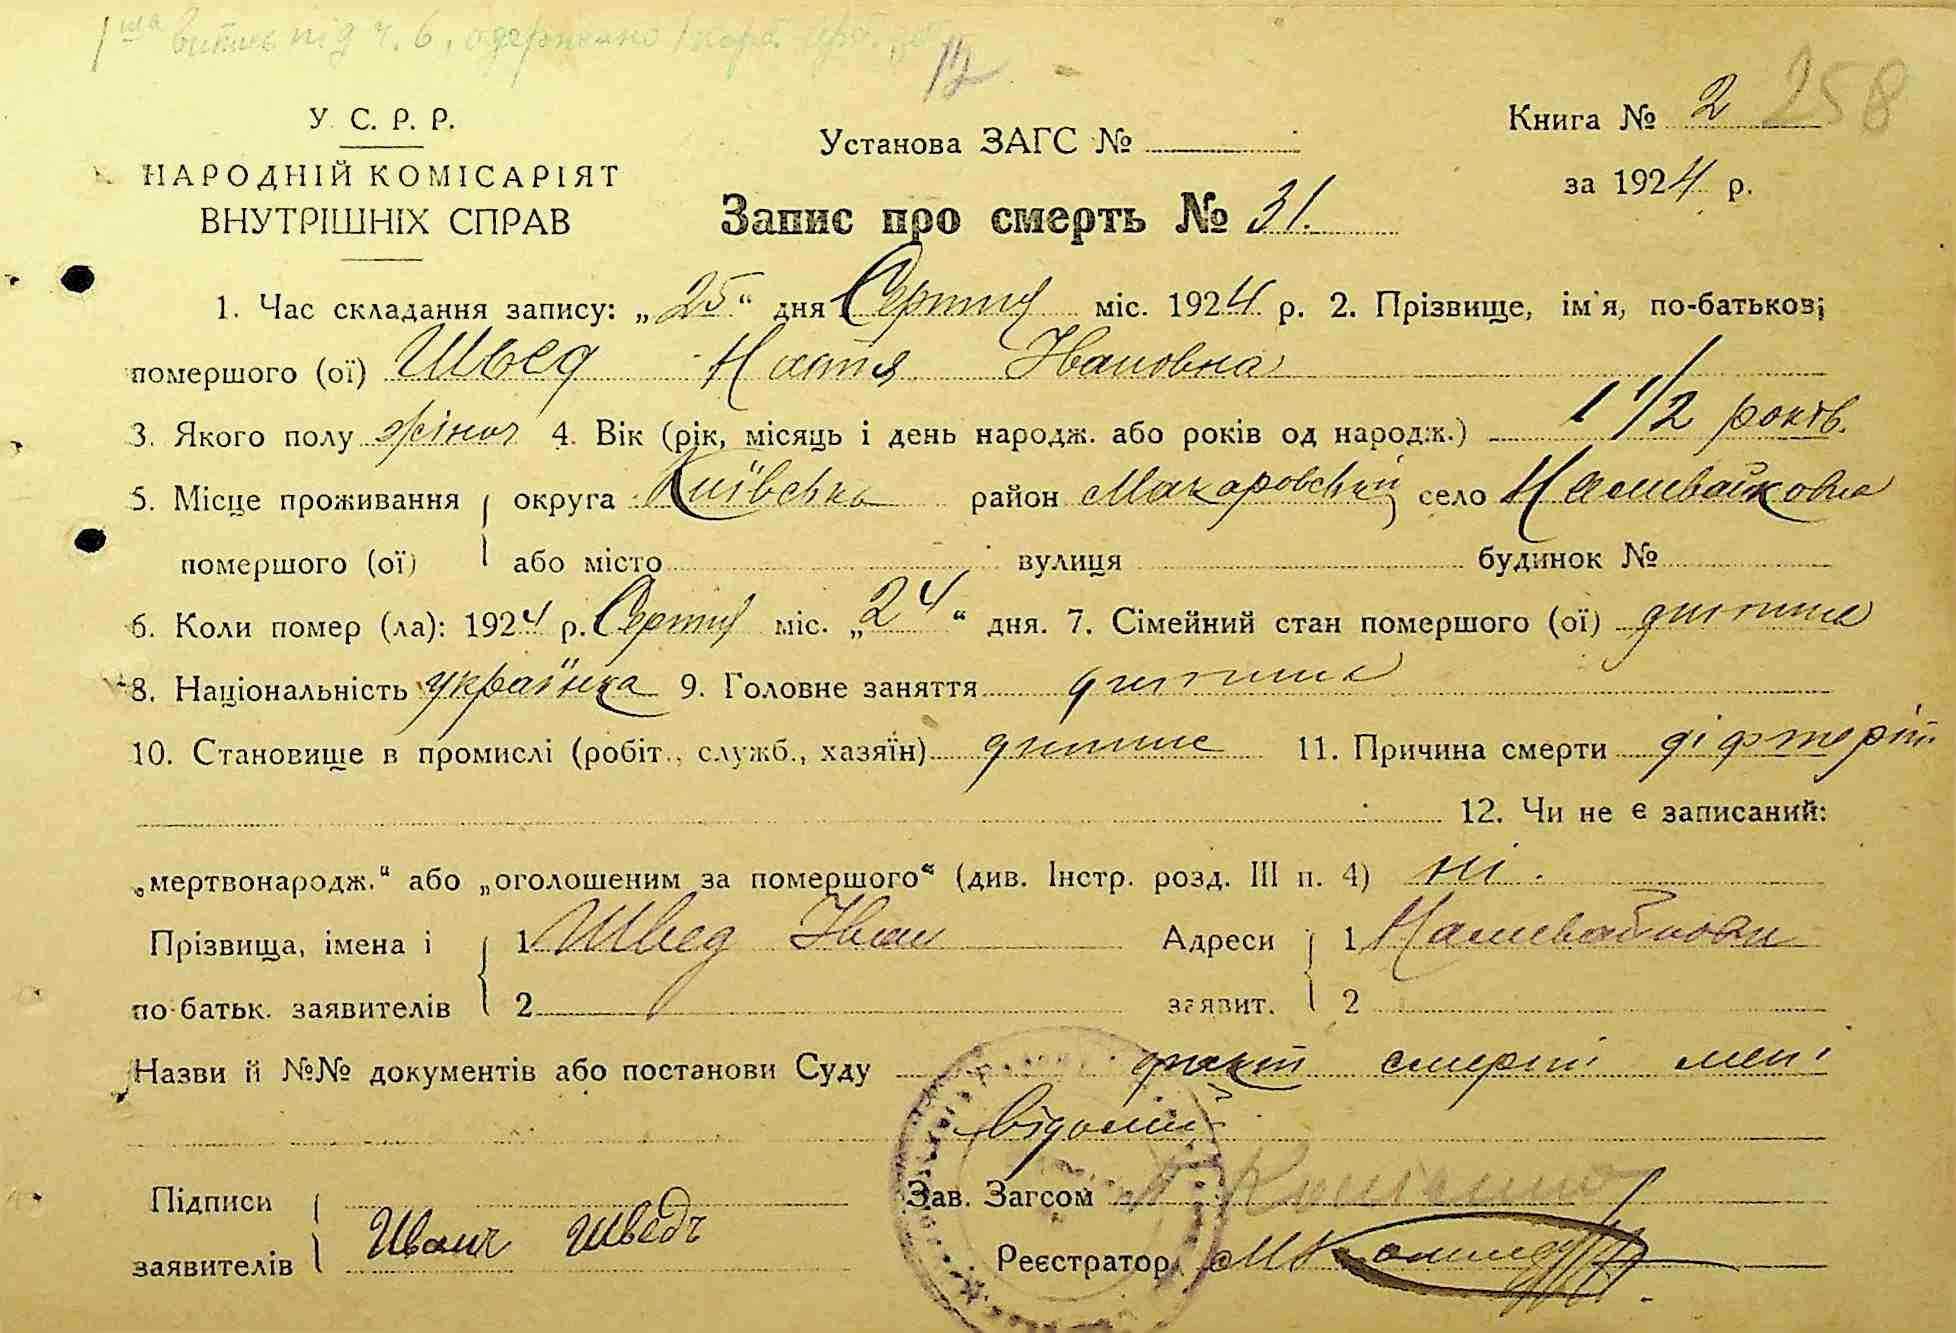 1ша витпись під ч. 6, одержано
12
У. С. Р. Р.
НАРОДНІЙ КОМІСАРІЯТ
ВНУТРІШНІХ СПРАВ
Установа ЗАГС №
Запис про смерть № 31.
Книга № 2 258
за 1924 р.
1. Час складання запису: „25“ дня Серпня міс. 1924 р. 2. Прізвище, ім'я, по-батькові
помершого (ої) Швед Настя Івановна
3. Якого полу жіноч 4. Вік (рік, місяць і день народж. або років од народж.) 1 1/2 років.
5. Місце проживання округа Київська район Макаровський село Наливайковка
помершого (ої) або місто вулиця будинок №
6. Коли помер (ла): 1924 р. Серпня міс. „24“ дня. 7. Сімейний стан помершого (ої) дитина
8. Національність українка 9. Головне заняття дитина
10. Становище в промислі (робіт., служб., хазяїн) дитина 11. Причина смерти діфтеріт
12. Чи не є записаний:
„мертвонародж.“ або „оголошеним за помершого“ (див. Інстр. розд. III п. 4) ні.
Прізвища, імена і 1 Швед Іван Адреси 1 Наливайковки
по-батьк. заявителів 2 заявит. 2
Назви й №№ документів або постанови Суду факт смерті мені
відомий
Підписи Зав. Загсом
заявителів Иванъ Шведъ Реєстратор